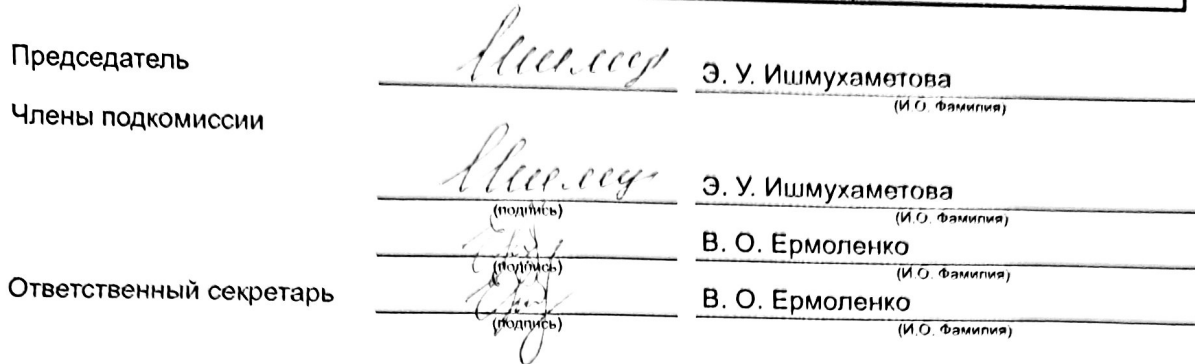 Председатель Э. У. Ишмухаметова
(И.О. Фамилия)
Члены подкомиссии
Э. У. Ишмухаметова
(подпись) (И.О. Фамилия)
В. О. Ермоленко
(подпись) (И.О. Фамилия)
Ответственный секретарь В. О. Ермоленко
(подпись) (И.О. Фамилия)